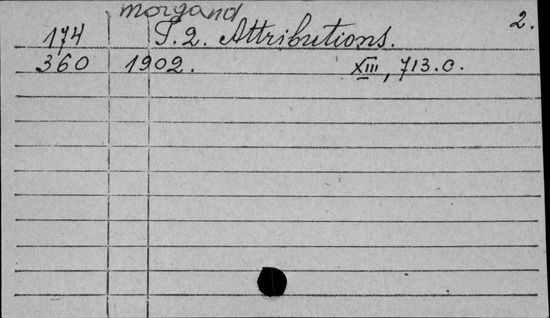 morgand 2.
174 T. 2. Attributions.
360 1902. XIII, 713. C.